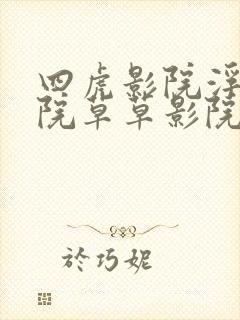 四虎影院浮
院草草影院
於巧妮